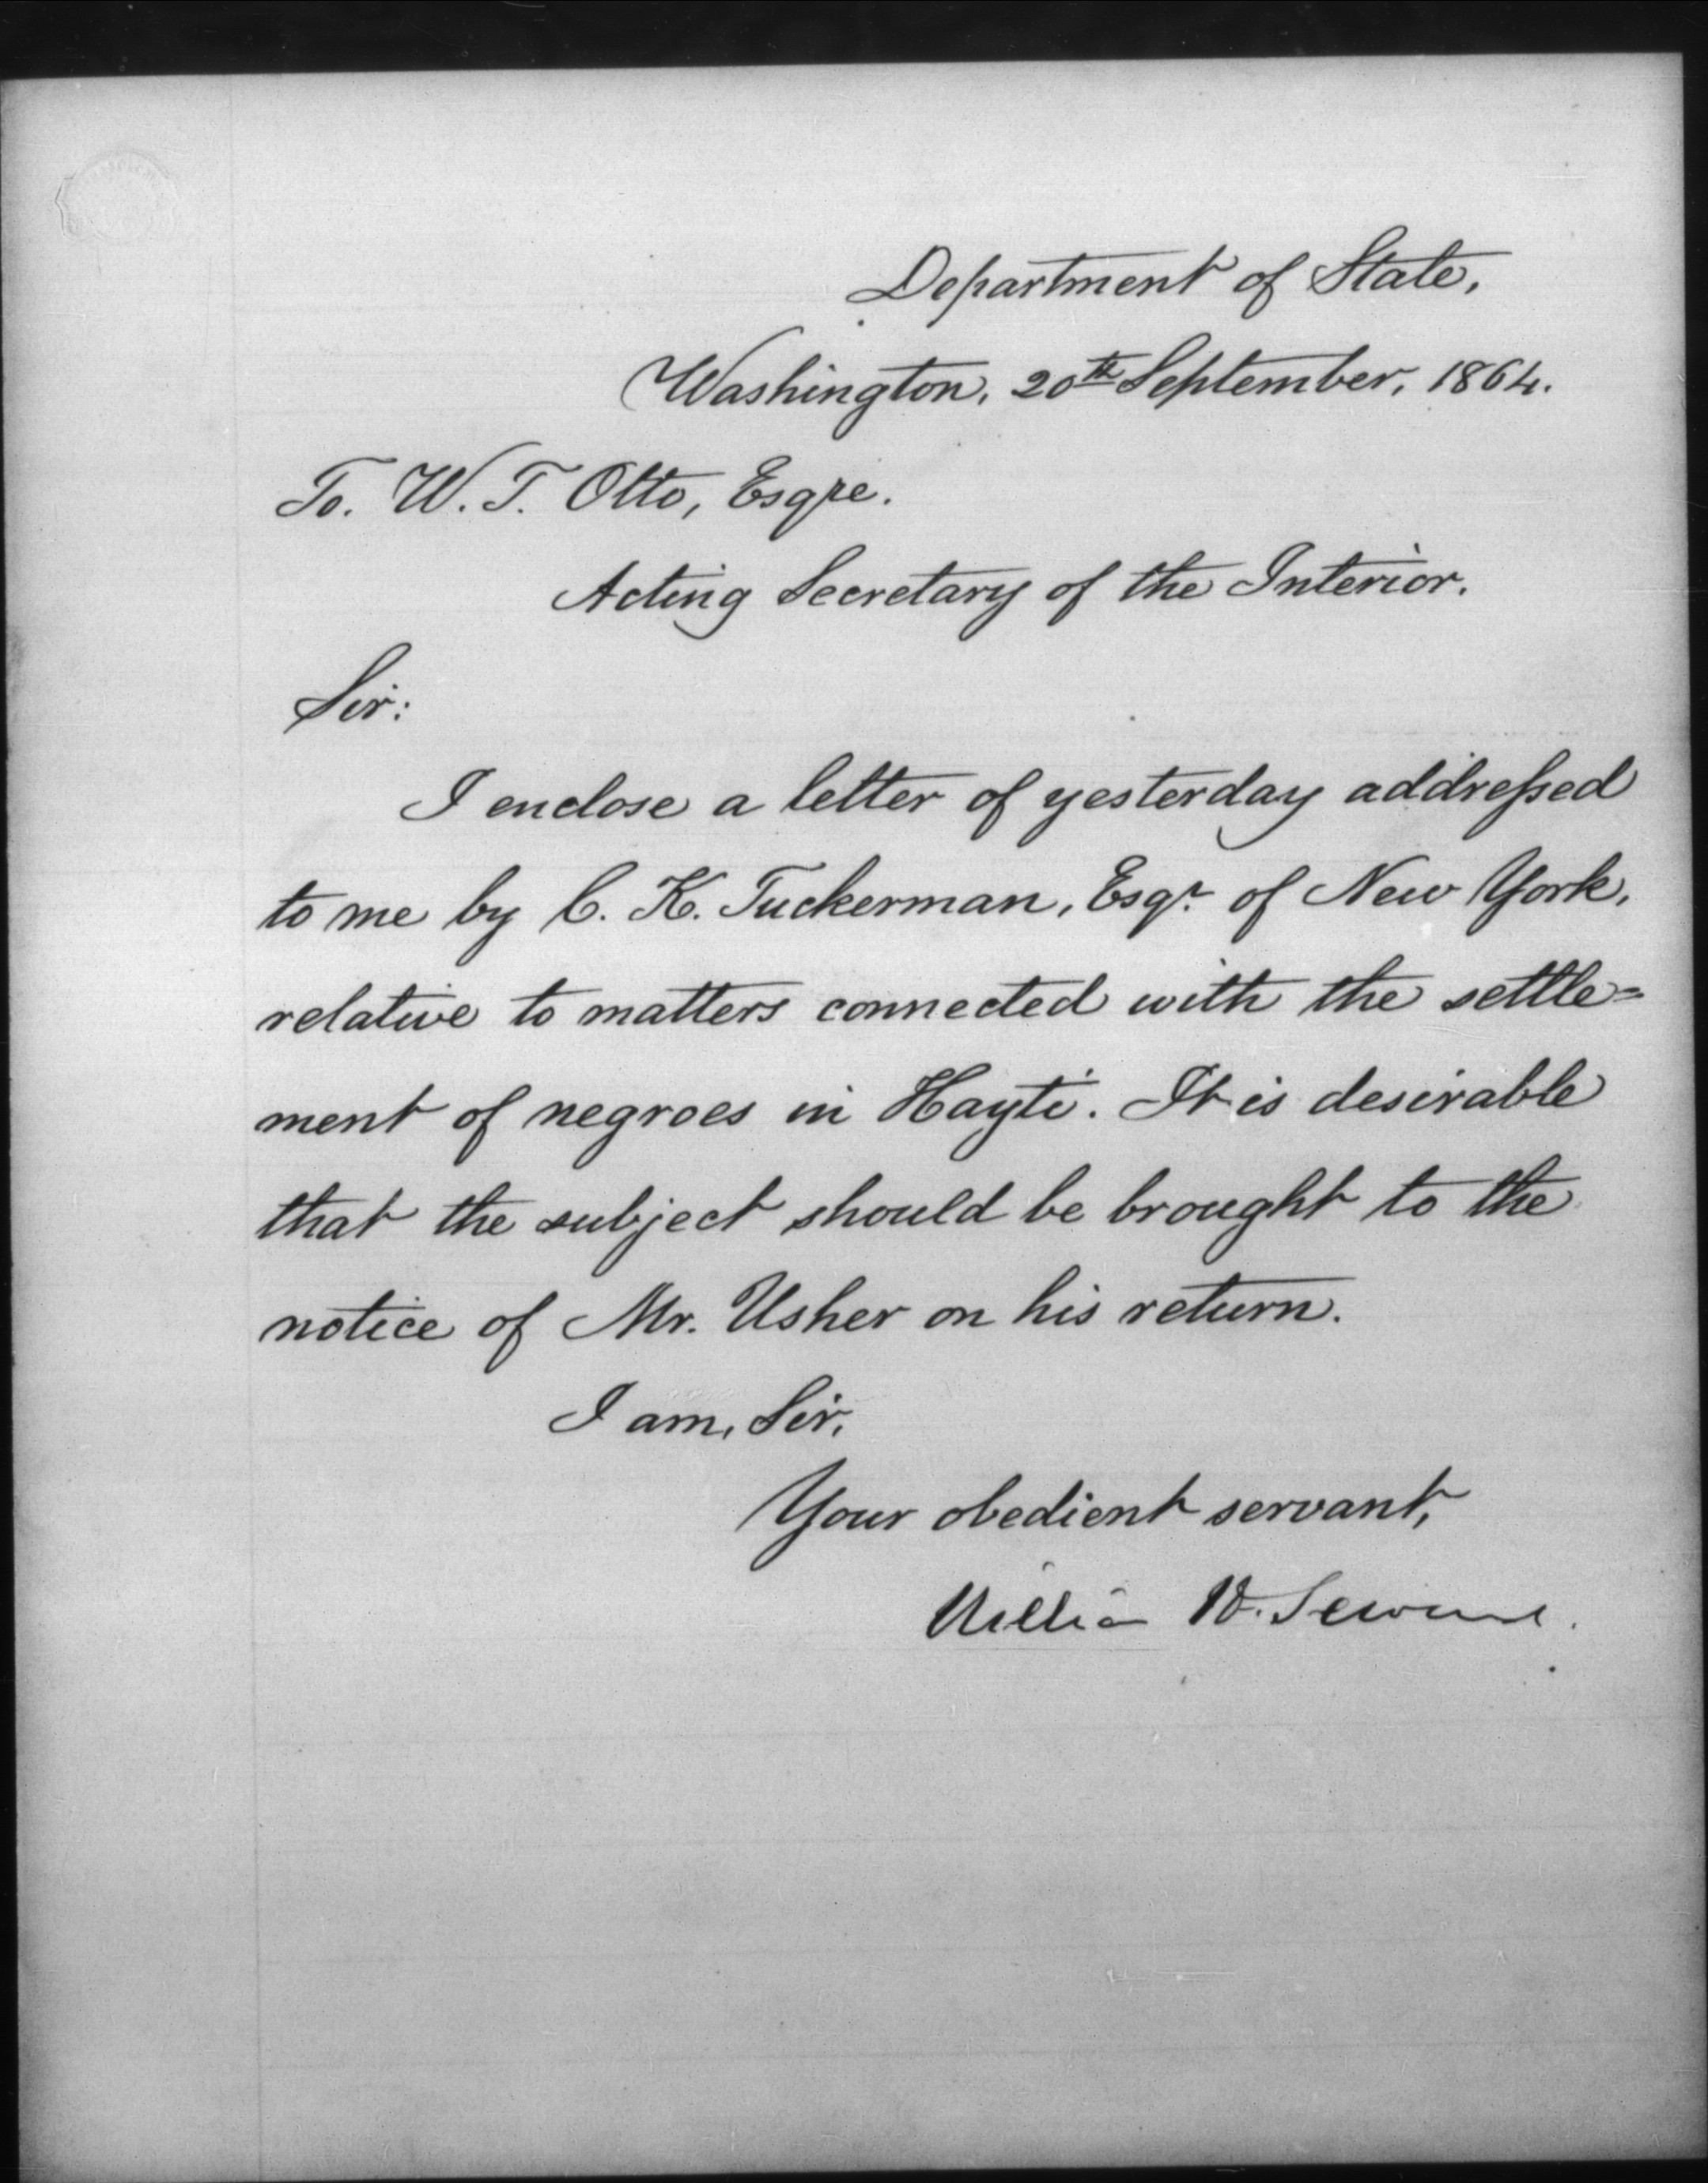 Department of State,
Washington, 20th September, 1864.
To. W. T. Otto, Esqre.
Acting Secretary of the Interior.
Sir:
I enclose a letter of yesterday addressed
to me by C. K. Tuckerman, Esqr. of New York,
relative to matters connected with the settle=
ment of negroes in Hayti. It is desirable
that the subject should be brought to the
notice of Mr. Usher on his return.
I am, Sir,
Your obedient servant,
William H. Seward.